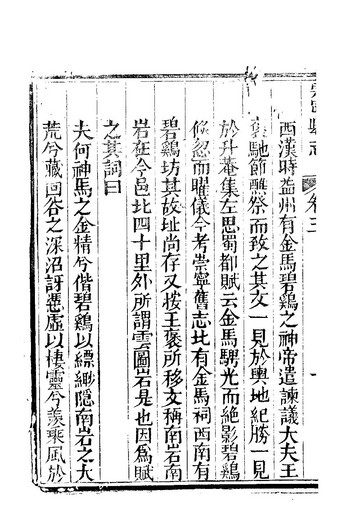 崇寧縣志 卷三
西漢時益州有金馬碧鷄之神帝遣諫議大夫王
褒馳節醮祭而致之其文一見於輿地紀勝一見
於升菴集左思蜀都賦云金馬騁光而絕影碧鷄
倏忽而曜儀今考崇寧舊志北有金馬祠西南有
碧鷄坊其故址尚存又按王褒所移文稱南岩南
岩在今邑北四十里外所謂雲圖岩是也因爲賦
之其詞曰
夫何神馬之金精兮偕碧鷄以縹緲隱南岩之大
荒兮藏回谷之深沼訝憑虛以棲靈兮羨乘風於